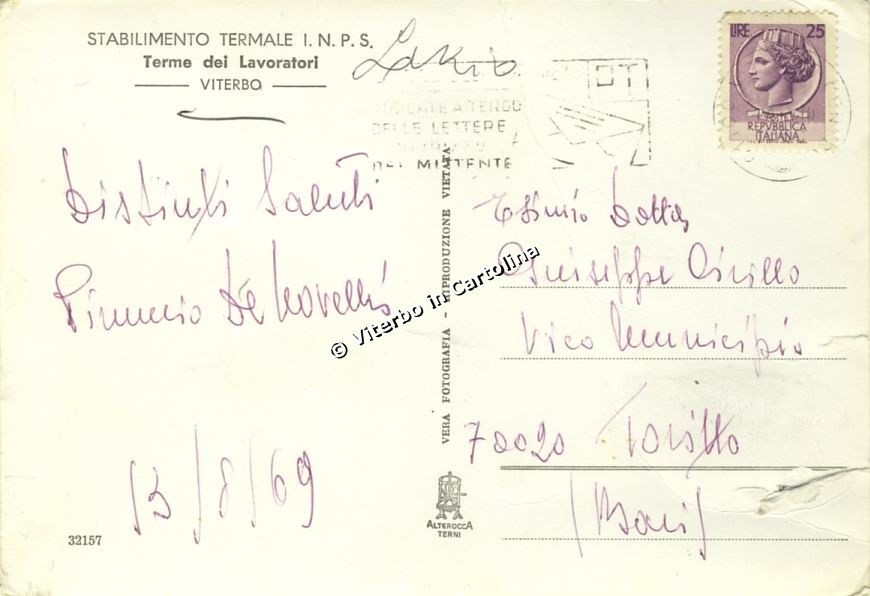 STABILIMENTO TERMALE I.N.P.S.
Terme dei Lavoratori
VITERBO
Lazio
INDICATE A TERGO
DELLE LETTERE
DEL MITTENTE
LIRE 25
POSTE
REPVBBLICA
ITALIANA
Distinti Saluti
De Novellis
13/8/69
32157
VERA FOTOGRAFIA - RIPRODUZIONE VIETATA
© Viterbo in Cartolina
ALTEROCCA
TERNI
Giuseppe Cirillo
Vico Municipio
70020 Toritto
(Bari)